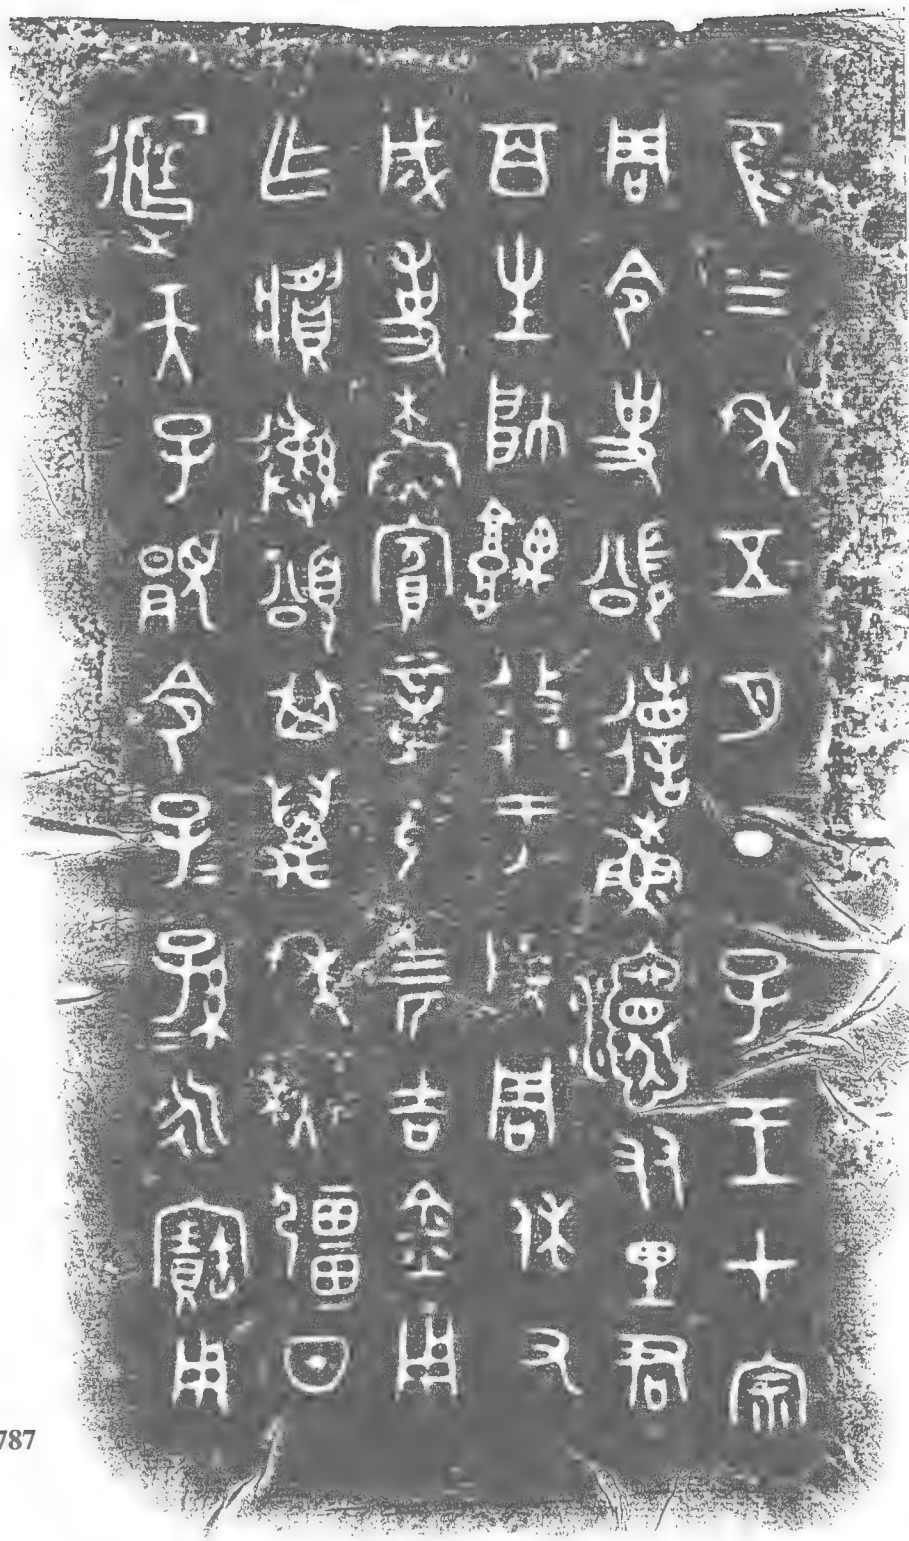 隹三年五月丁巳王才宗
周令史頌省穌姻友里君
百生帥堣盩于成周休又
成事穌賓章馬四匹吉金用
乍𩰬彝頌其萬年無疆日
𨒙天子顯令子=孫=永寶用
787